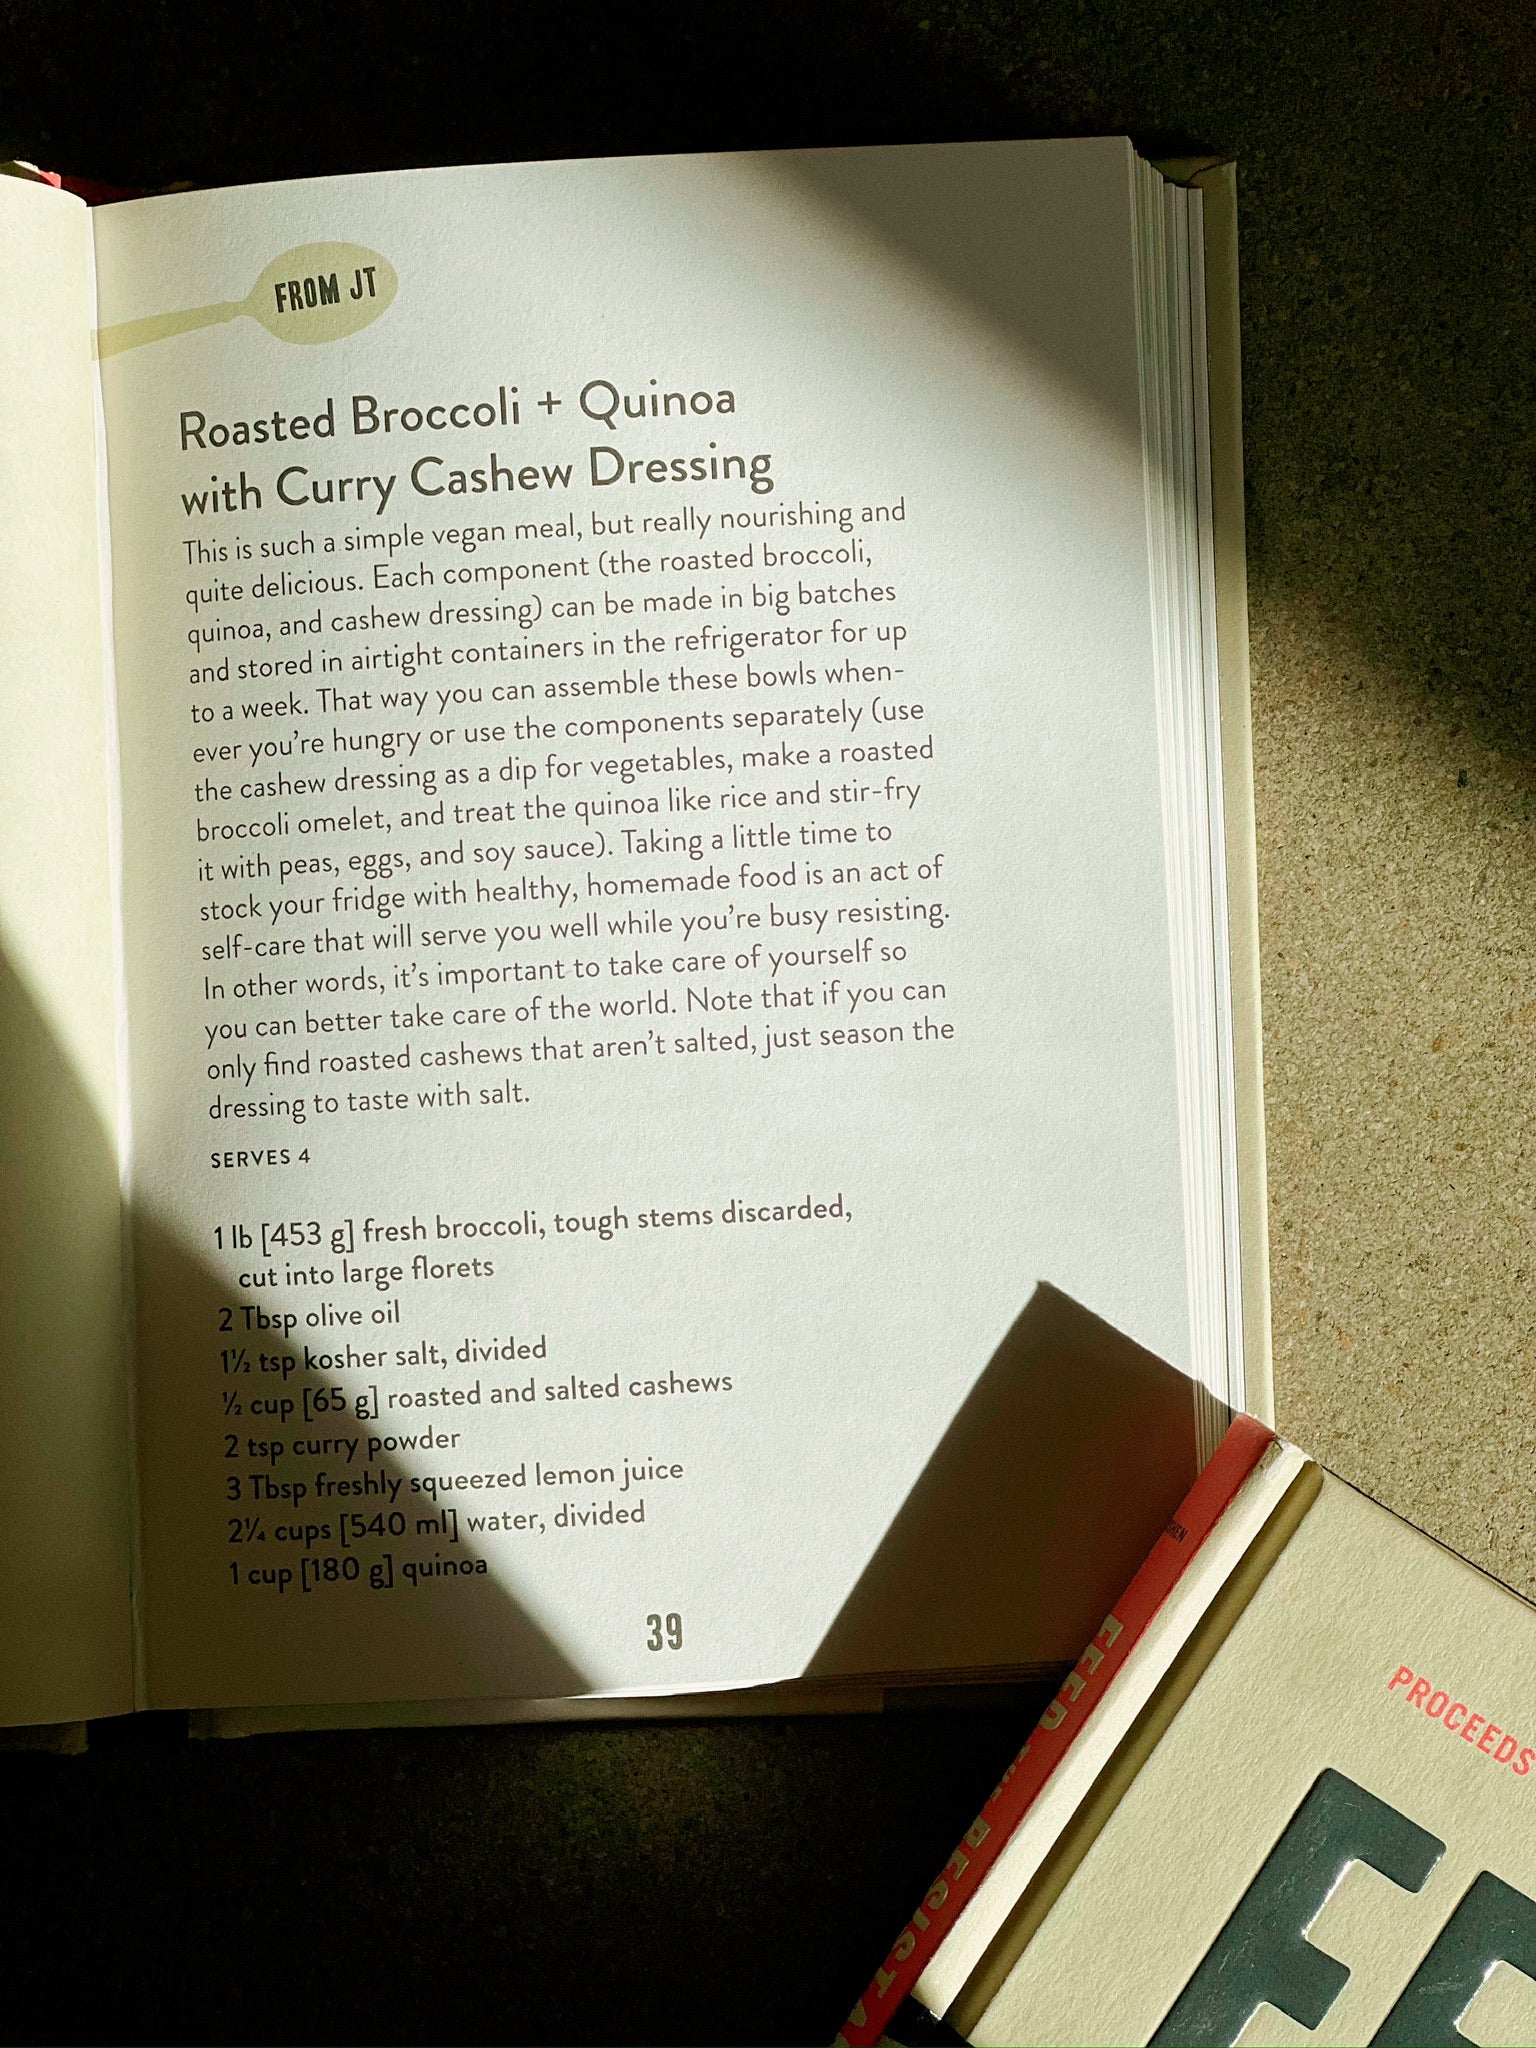 FROM JT
Roasted Broccoli + Quinoa
with Curry Cashew Dressing
This is such a simple vegan meal, but really nourishing and
quite delicious. Each component (the roasted broccoli,
quinoa, and cashew dressing) can be made in big batches
and stored in airtight containers in the refrigerator for up
to a week. That way you can assemble these bowls when-
ever you're hungry or use the components separately (use
the cashew dressing as a dip for vegetables, make a roasted
broccoli omelet, and treat the quinoa like rice and stir-fry
it with peas, eggs, and soy sauce). Taking a little time to
stock your fridge with healthy, homemade food is an act of
self-care that will serve you well while you're busy resisting.
In other words, it's important to take care of yourself so
you can better take care of the world. Note that if you can
only find roasted cashews that aren't salted, just season the
dressing to taste with salt.
SERVES 4
1 lb [453 g] fresh broccoli, tough stems discarded,
cut into large florets
2 Tbsp olive oil
1½ tsp kosher salt, divided
½ cup [65 g] roasted and salted cashews
2 tsp curry powder
3 Tbsp freshly squeezed lemon juice
2¼ cups [540 ml] water, divided
1 cup [180 g] quinoa
39
FEED THE RESISTA
PROCEEDS